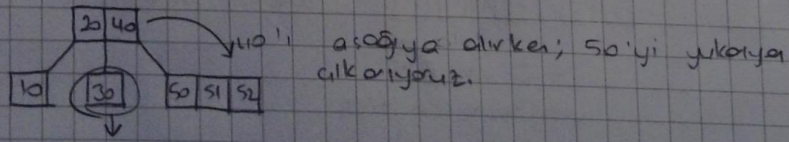 20 40
40'ı aşağıya alırken; 50'yi yukarıya
çıkarıyoruz.
10 30 50 51 52